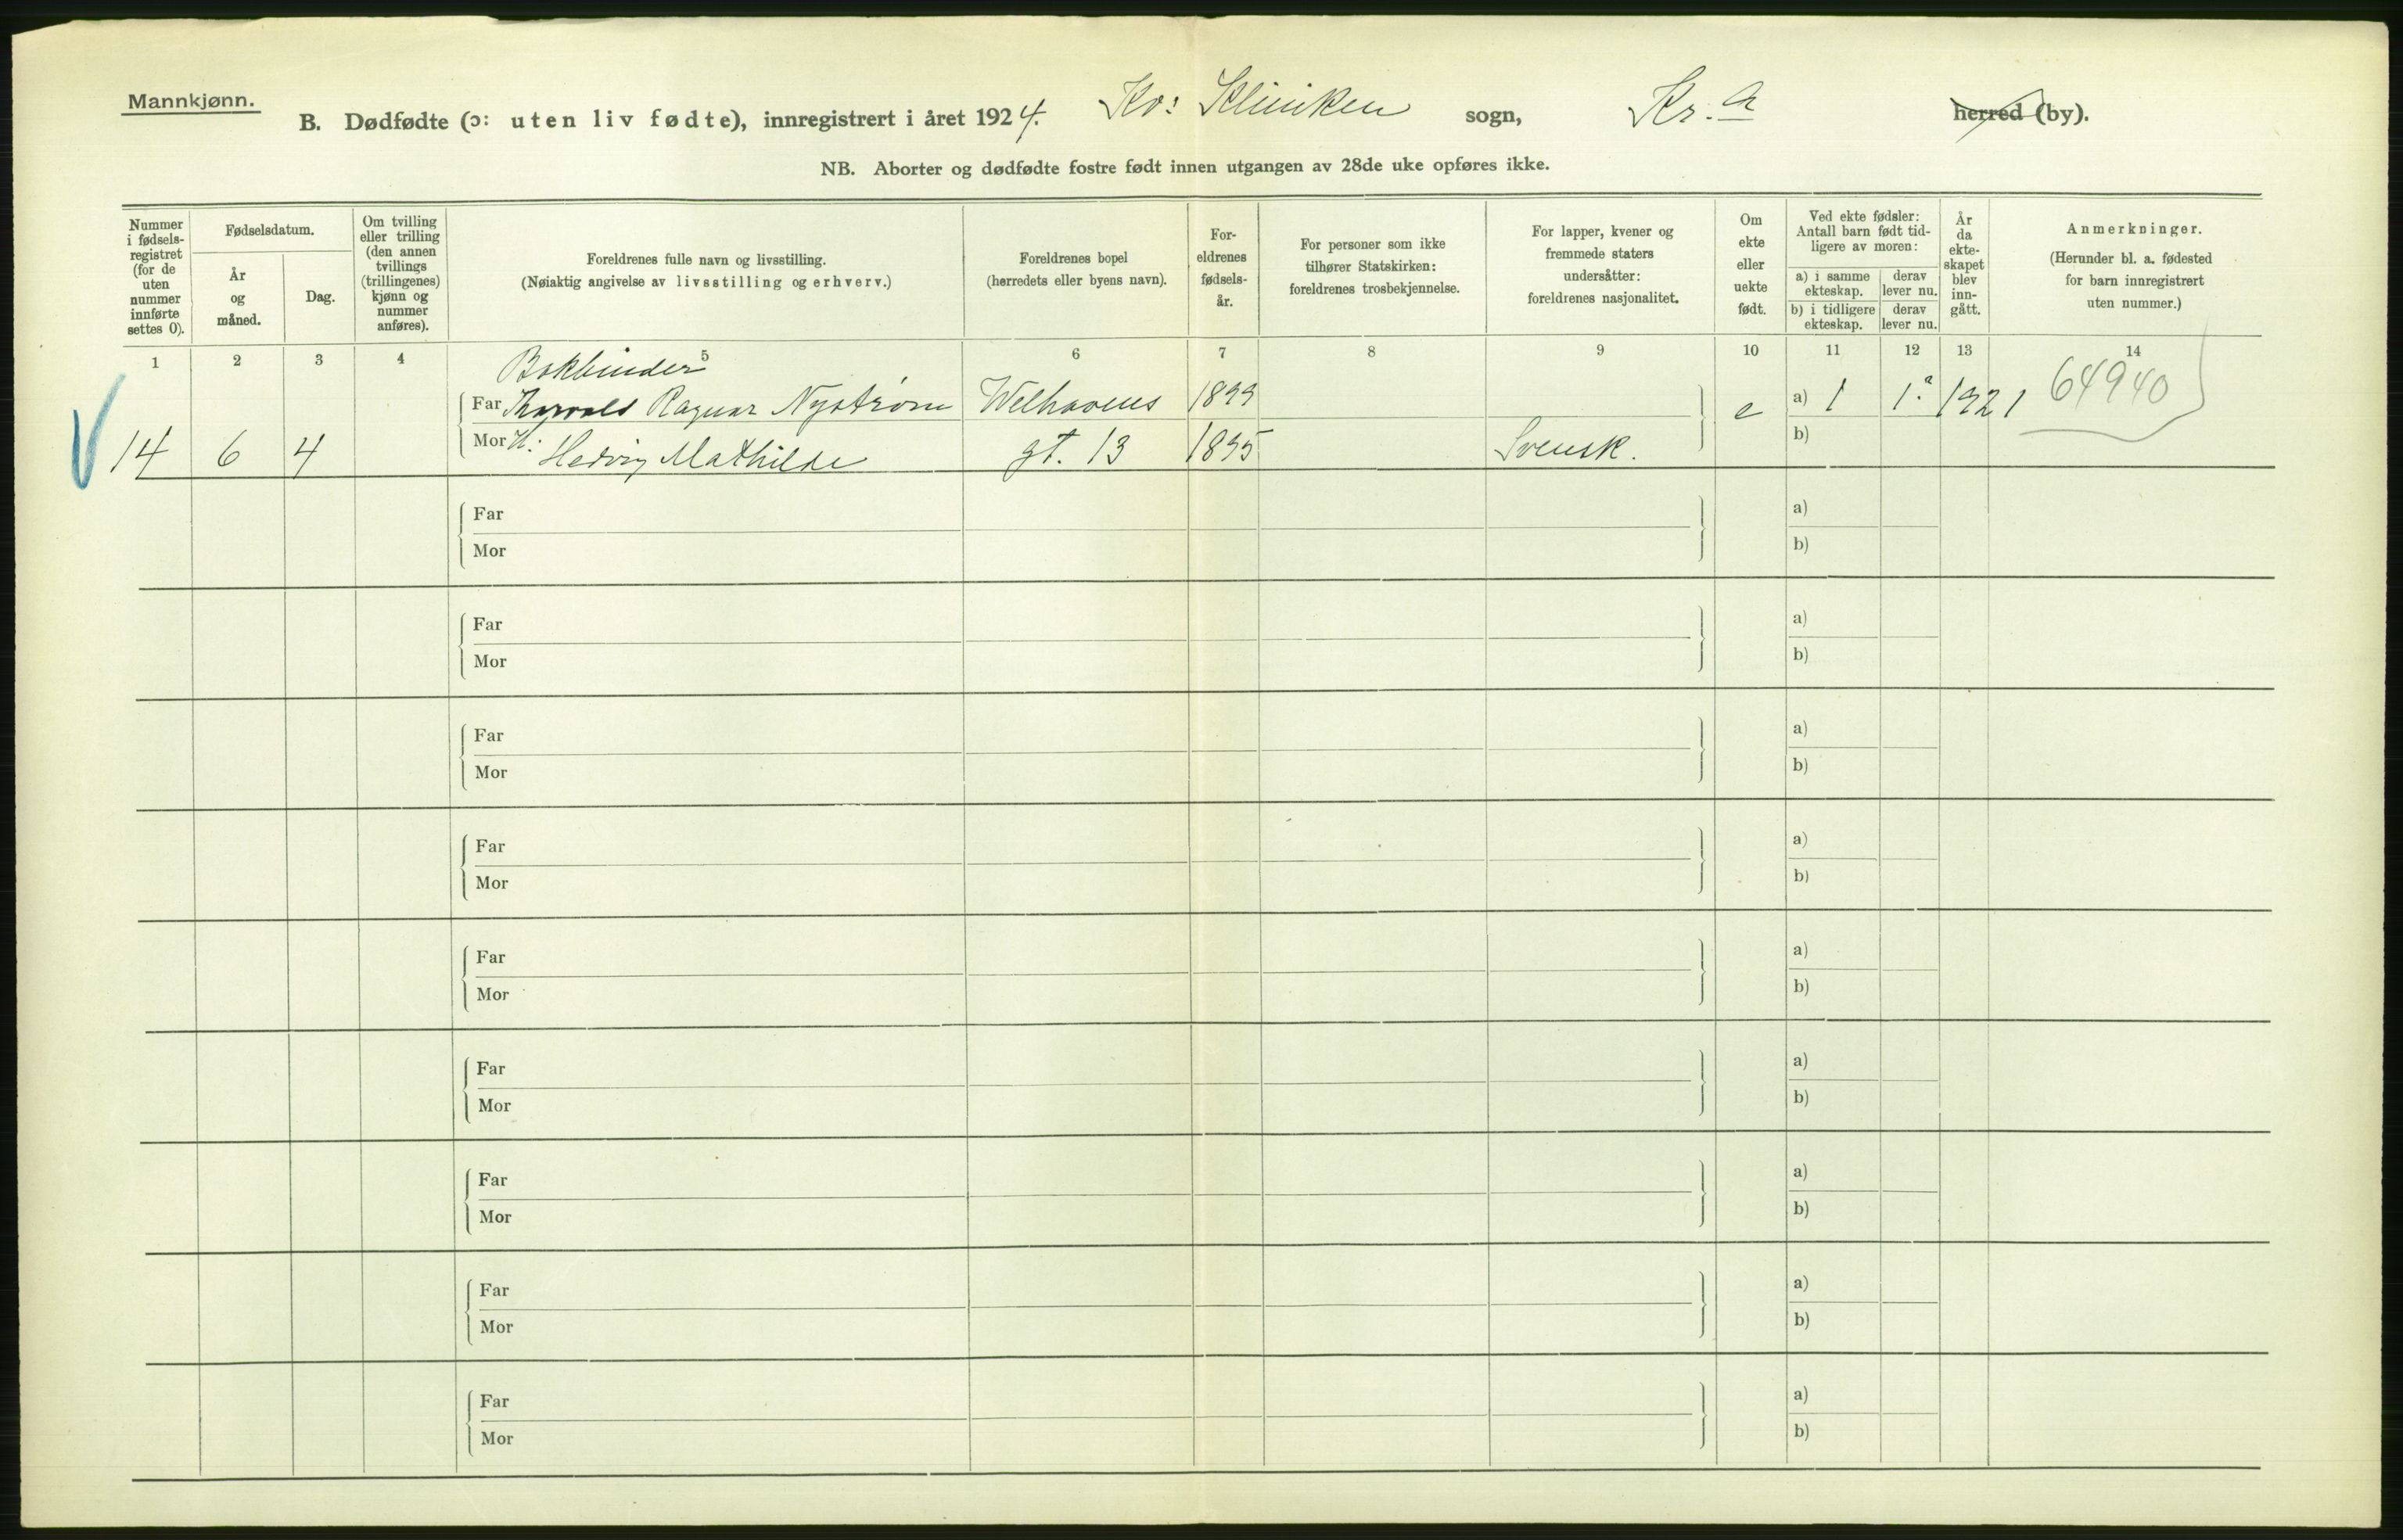 Mannkjønn.
B. Dødfødte (ɔ: uten liv fødte), innregistrert i året 1924. Kv: Kliniken sogn, Kr.a herred (by).
NB. Aborter og dødfødte fostre født innen utgangen av 28de uke opføres ikke.
Nummer i fødsels-registret (for de uten nummer innførte settes 0).
Fødselsdatum.
År og måned.
Dag.
Om tvilling eller trilling (den annen tvillings (trillingenes) kjønn og nummer anføres).
Foreldrenes fulle navn og livsstilling.
(Nøiaktig angivelse av livsstilling og erhverv.)
Foreldrenes bopel
(herredets eller byens navn).
For-eldrenes fødsels-år.
For personer som ikke tilhører Statskirken: foreldrenes trosbekjennelse.
For lapper, kvener og fremmede staters undersåtter: foreldrenes nasjonalitet.
Om ekte eller uekte født.
Ved ekte fødsler: Antall barn født tid-ligere av moren:
a) i samme ekteskap. derav lever nu.
b) i tidligere ekteskap. derav lever nu.
År da ekte-skapet blev inn-gått.
Anmerkninger.
(Herunder bl. a. fødested for barn innregistrert uten nummer.)
1 2 3 4 5 6 7 8 9 10 11 12 13 14
Bokbinder
Far Ragnar Nystrøm Welhavens 1899 e a) 1 1 1921 64940
14 6 4 Mor H. Hedvig Mathilde gt. 13 1895 Svensk. b)
Far a)
Mor b)
Far a)
Mor b)
Far a)
Mor b)
Far a)
Mor b)
Far a)
Mor b)
Far a)
Mor b)
Far a)
Mor b)
Far a)
Mor b)
Far a)
Mor b)